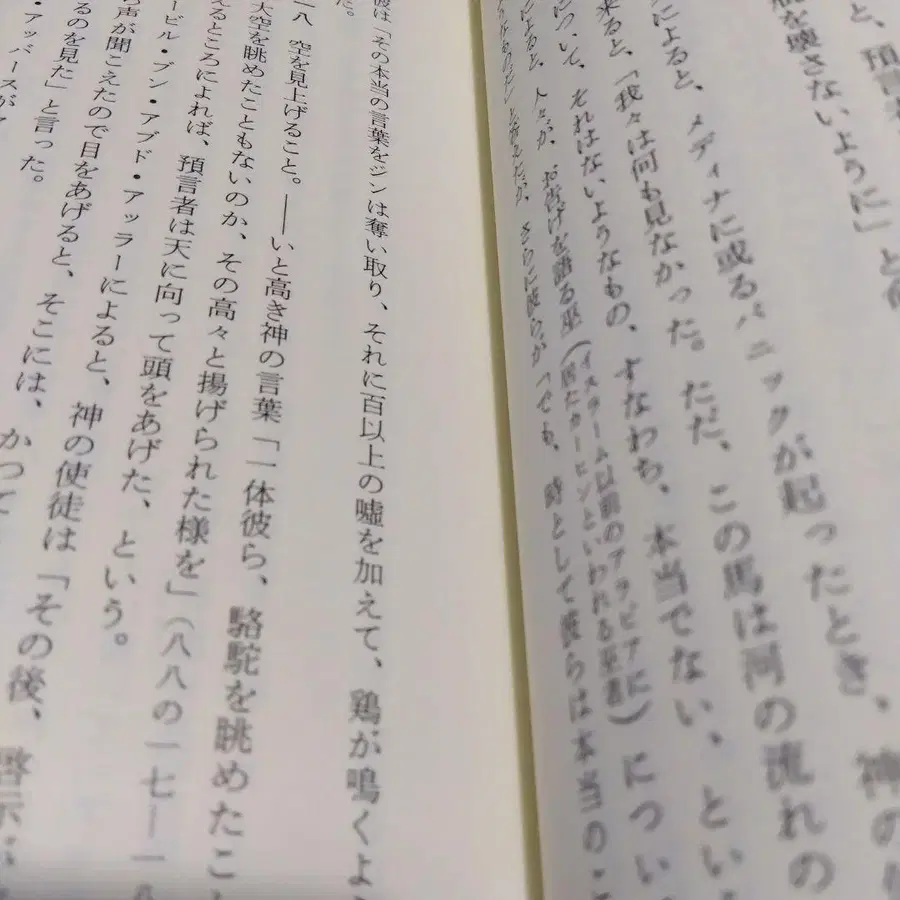 と、預言者
瓶を壊さないように」と
によると、メディナに或るパニックが起ったとき、神の
来ると、「我々は何も見なかった。ただ、この馬は河の流れの
について、それはないようなもの、すなわち、本当でない、とい
によると、人々が、お告げを語る巫（イスラーム以前のアラビアに居たカーヒンといわれる巫者）につい
うなものだ」と答えたが、さらに彼らが「でも、時として彼らは本当の
彼は「その本当の言葉をジンは奪い取り、それに百以上の嘘を加えて、鶏が鳴くよ
だ。
一八 空を見上げること。――いと高き神の言葉「一体彼ら、駱駝を眺めたこ
大空を眺めたこともないのか、その高々と揚げられた様を」（八八の一七―一八
えるところによれば、預言者は天に向って頭をあげた、という。
ービル・ブン・アブド・アッラーによると、神の使徒は「その後、啓示が
ら声が聞こえたので目をあげると、そこには、かつて
るのを見た」と言った。
・アッバースが